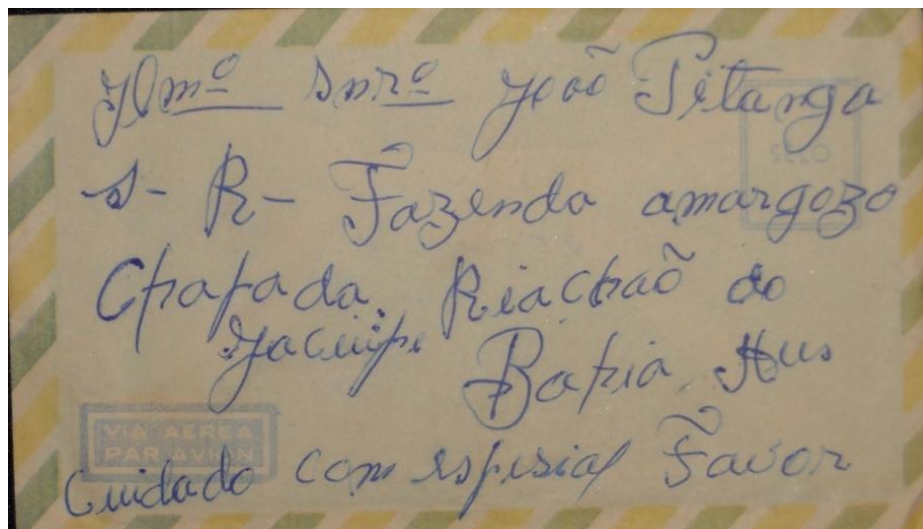 Ilmº Snrº João Pitanga
SELO
S- R- Fazenda amargozo
Chapada. Riachaõ do
Jacuipe
Bahia
VIA AEREA
PAR AVION
Cuidado com espesial Favor